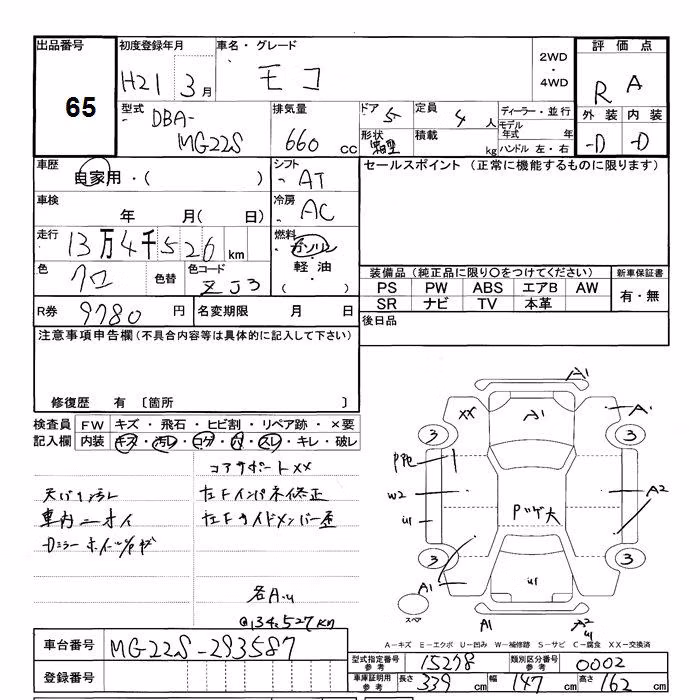 出品番号 初度登録年月 車名・グレード 2WD・4WD 評価点
65 H21 3月 モコ R A
型式 DBA-MG22S 排気量 660 cc ドア 5 定員 4人 ディーラー・並行 外装 内装
形状 箱型 積載 kg モデル年式 年 ハンドル 左・右 D D
車歴 自家用・( ) シフト AT セールスポイント (正常に機能するものに限ります)
車検 年 月( 日) 冷房 AC
走行 13万4千526 km 燃料 ガソリン・軽油 ( )
色 クロ 色替 色コード ZJ3 装備品 (純正品に限り○をつけてください) 新車保証書
PS PW ABS エアB AW 有・無
SR ナビ TV 本革
R券 9780 円 名変期限 月 日 後日品
注意事項申告欄 (不具合内容等は具体的に記入して下さい)
修復歴 有 〔箇所 〕
検査員記入欄 FW キズ・飛石・ヒビ割・リペア跡・×要
内装 キズ・汚レ・コゲ・穴・スレ・キレ・破レ
コアサポートXX
左Fインパネ修正
車内ニオイ
左Fサイドメンバー歪
各A.u
@134,527KM
A1
XX A1 A1
3 3
W2 A2
U1 Pハゲ大
3 3
A1 U1
スペア A1 A2 U1
A-キズ E-エクボ U-凹み W-補修跡 S-サビ C-腐食 XX-交換済
車台番号 MG22S-293587
登録番号
型式指定番号 参考 15278 類別区分番号 参考 0002
車庫証明用 参考 長さ 339 cm 幅 147 cm 高さ 162 cm